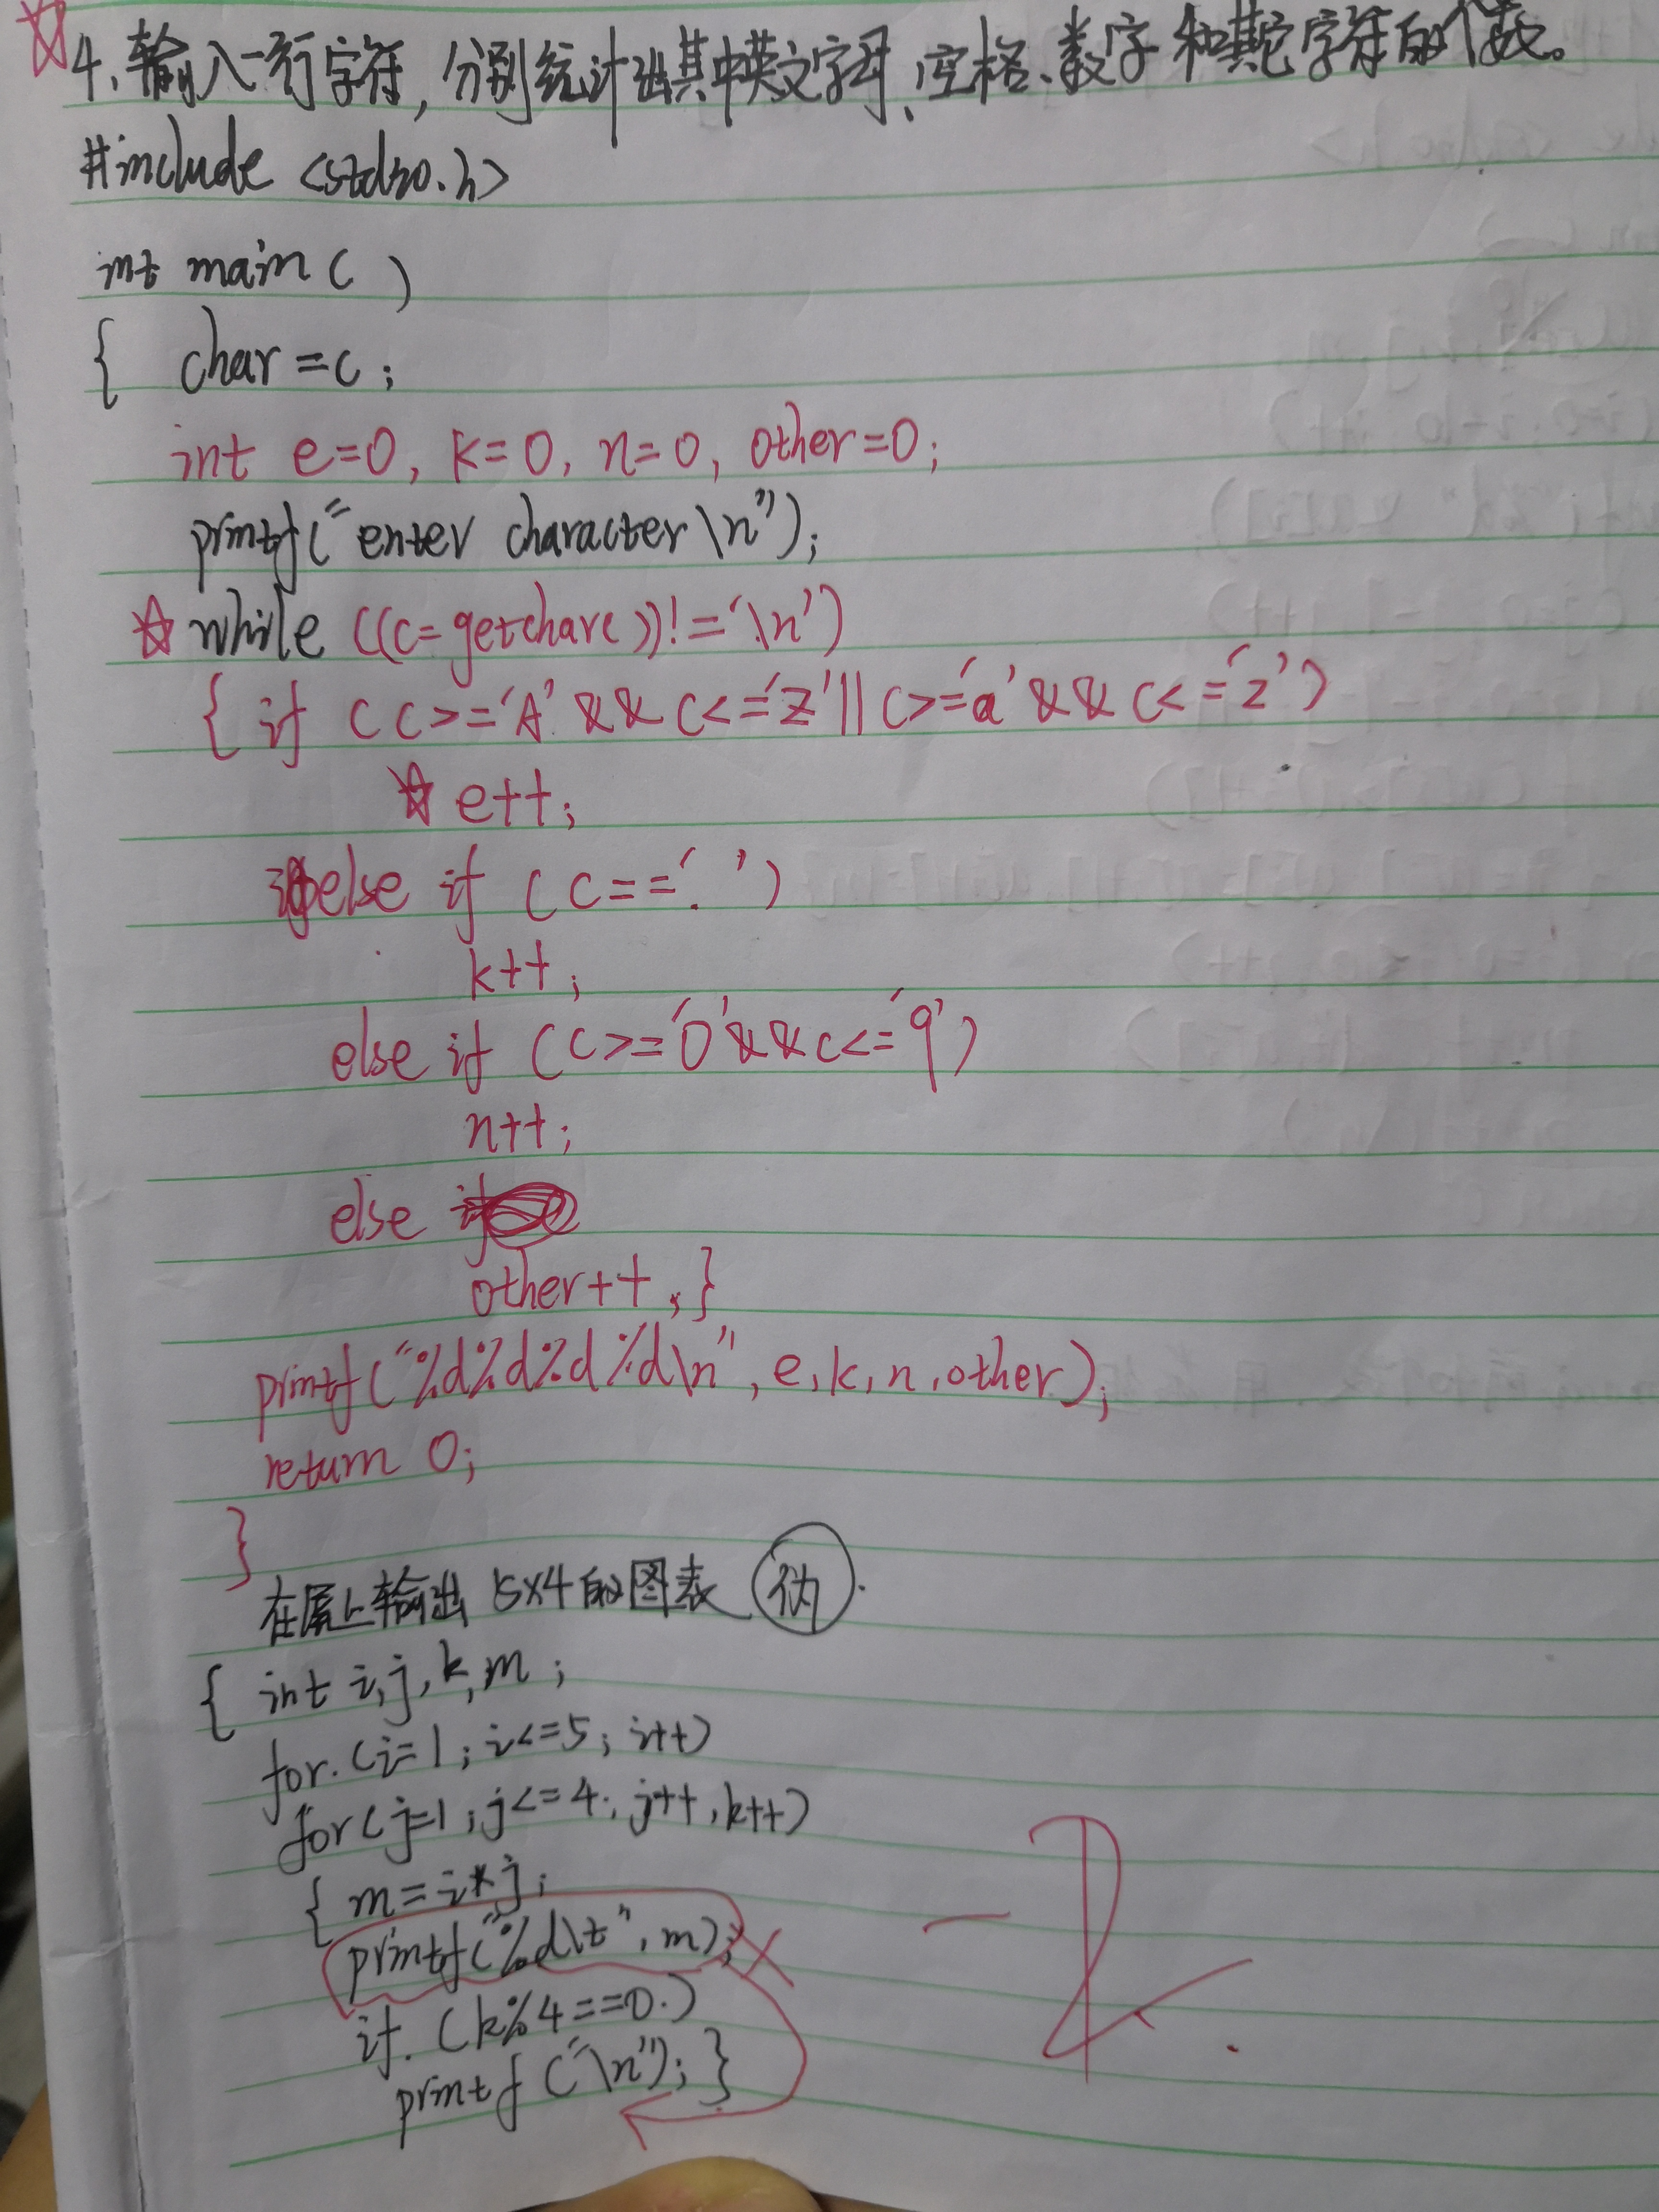 4、输入一行字符，分别统计出其中英文字母、空格、数字和其它字符的个数。
#include <stdio.h>
int main( )
{ char=c;
int e=0, k=0, n=0, other=0;
printf("enter character\n");
while ((c=getchar())!='\n')
{ if (c>='A'&&c<='Z'||c>='a'&&c<='z')
e++;
else if (c==' ')
k++;
else if (c>='0'&&c<='9')
n++;
else
other++;}
printf("%d%d%d%d\n",e,k,n,other);
return 0;
}
在屏上输出5x4的图表
{ int i,j,k,m;
for(i=1;i<=5;i++)
for(j=1;j<=4;j++,k++)
{ m=i*j;
printf("%d\t",m);
if(k%4==0)
printf("\n");}